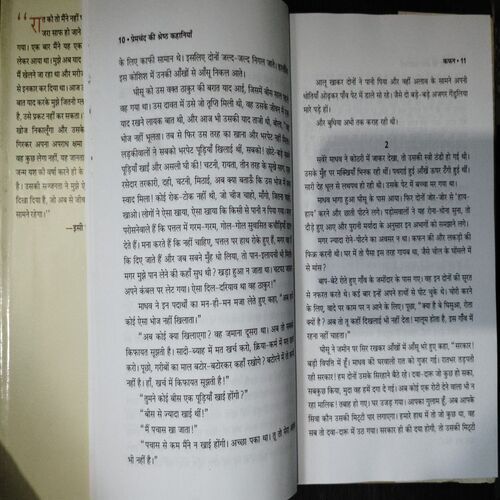 “रात को तो मैंने नहीं
जरा साफ हो जाने
गया। एक बार मैंने यह एक
लेकर आया था। मुझे अब याद
में खेलने जा रहा था और मरीज
से इनकार कर दिया था। आज
बात याद करके मुझे जितनी
उसे प्रकट नहीं कर सकता।
खोज निकालूँगा और उसके
गिरकर अपना अपराध क्षमा
वह कुछ लेगा नहीं, यह जानता
जन्म यश की वर्षा करने ही के
है। उसकी सज्जनता ने मुझे
दिखा दिया है, जो अब से जीवन
सामने रहेगा।”
—इसी
10 • प्रेमचंद की श्रेष्ठ कहानियाँ
के लिए काफी सामान थे। इसलिए दोनों जल्द-जल्द निगल जाते। हालाँकि
इस कोशिश में उनकी आँखों से आँसू निकल आते।
घीसू को उस वक्त ठाकुर की बरात याद आई, जिसमें बीस साल पहले
वह गया था। उस दावत में उसे जो तृप्ति मिली थी, वह उसके जीवन में एक
याद रखने लायक बात थी, और आज भी उसकी याद ताजी थी, बोला, “वह
भोज नहीं भूलता। तब से फिर उस तरह का खाना और भरपेट नहीं मिला।
लड़कीवालों ने सबको भरपेट पूड़ियाँ खिलाई थीं, सबको! छोटे-बड़े सबने
पूड़ियाँ खाईं और असली घी की! चटनी, रायता, तीन तरह के सूखे साग, एक
रसेदार तरकारी, दही, चटनी, मिठाई, अब क्या बताऊँ कि उस भोज में क्या
स्वाद मिला! कोई रोक-टोक नहीं थी, जो चीज चाहो, माँगो, जितना चाहो,
खाओ। लोगों ने ऐसा खाया, ऐसा खाया कि किसी से पानी न पिया गया। मगर
परोसनेवाले हैं कि पत्तल में गरम-गरम, गोल-गोल सुवासित कचौड़ियाँ डाल
देते हैं। मना करते हैं कि नहीं चाहिए, पत्तल पर हाथ रोके हुए हैं, मगर वह हैं
कि दिए जाते हैं और जब सबने मुँह धो लिया, तो पान-इलायची भी मिली।
मगर मुझे पान लेने की कहाँ सुध थी? खड़ा हुआ न जाता था। चटपट जाकर
अपने कंबल पर लेट गया। ऐसा दिल-दरियाव था वह ठाकुर!”
माधव ने इन पदार्थों का मन-ही-मन मजा लेते हुए कहा, “अब हमें
कोई ऐसा भोज नहीं खिलाता।”
“अब कोई क्या खिलाएगा? वह जमाना दूसरा था। अब तो सबको
किफायत सूझती है। सादी-ब्याह में मत खर्च करो, क्रिया-कर्म में मत खर्च
करो। पूछो, गरीबों का माल बटोर-बटोरकर कहाँ रखोगे? बटोरने में तो कमी
नहीं है। हाँ, खर्च में किफायत सूझती है!”
“तुमने कोई बीस एक पूड़ियाँ खाई होंगी?”
“बीस से ज्यादा खाई थीं!”
“मैं पचास खा जाता!”
“पचास से कम मैंने न खाई होंगी। अच्छा पका था। तू तो मेरा आधा
भी नहीं है।”
कफन • 11
आलू खाकर दोनों ने पानी पिया और वहीं अलाव के सामने अपनी
धोतियाँ ओढ़कर पाँव पेट में डाले सो रहे। जैसे दो बड़े-बड़े अजगर गेंडुलिया
मारे पड़े हों।
और बुधिया अभी तक कराह रही थी।
2
सवेरे माधव ने कोठरी में जाकर देखा, तो उसकी स्त्री ठंडी हो गई थी।
उसके मुँह पर मक्खियाँ भिनक रही थीं। पथराई हुई आँखें ऊपर टँगी हुई थीं।
सारी देह धूल से लथपथ हो रही थी। उसके पेट में बच्चा मर गया था।
माधव भागा हुआ घीसू के पास आया। फिर दोनों जोर-जोर से ‘हाय-
हाय’ करने और छाती पीटने लगे। पड़ोसवालों ने यह रोना-धोना सुना, तो
दौड़े हुए आए और पुरानी मर्यादा के अनुसार इन अभागों को समझाने लगे।
मगर ज्यादा रोने-पीटने का अवसर न था। कफन की और लकड़ी की
फिक्र करनी थी। घर में तो पैसा इस तरह गायब था, जैसे चील के घोंसले में
से मांस?
बाप-बेटे रोते हुए गाँव के जमींदार के पास गए। वह इन दोनों की सूरत
से नफरत करते थे। कई बार इन्हें अपने हाथों से पीट चुके थे। चोरी करने
के लिए, वादे पर काम पर न आने के लिए। पूछा, “क्या है बे घिसुआ, रोता
क्यों है? अब तो तू कहीं दिखलाई भी नहीं देता! मालूम होता है, इस गाँव में
रहना नहीं चाहता।”
घीसू ने जमीन पर सिर रखकर आँखों में आँसू भरे हुए कहा, “सरकार!
बड़ी विपत्ति में हूँ। माधव की घरवाली रात को गुजर गई। रातभर तड़पती
रही सरकार! हम दोनों उसके सिरहाने बैठे रहे। दवा-दारू जो कुछ हो सका,
सबकुछ किया, मुदा वह हमें दगा दे गई। अब कोई एक रोटी देने वाला भी न
रहा मालिक! तबाह हो गए। घर उजड़ गया। आपका गुलाम हूँ, अब आपके
सिवा कौन उसकी मिट्टी पार लगाएगा। हमारे हाथ में तो जो कुछ था, वह
सब तो दवा-दारू में उठ गया। सरकार ही की दया होगी, तो उसकी मिट्टी